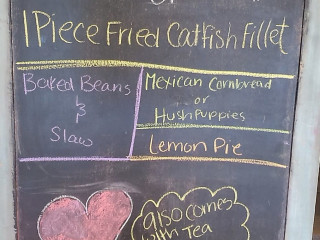 1 Piece Fried Catfish Fillet
Baked Beans
&
Slaw
Mexican Cornbread
or
Hush Puppies
Lemon Pie
also comes
with Tea